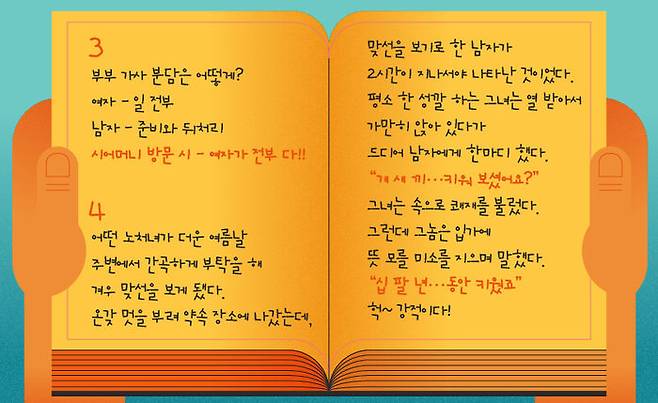 3
부부 가사 분담은 어떻게?
여자 - 일 전부
남자 - 준비와 뒤처리
시어머니 방문 시 - 여자가 전부 다!!
4
어떤 노처녀가 더운 여름날
주변에서 간곡하게 부탁을 해
겨우 맞선을 보게 됐다.
온갖 멋을 부려 약속 장소에 나갔는데,
맞선을 보기로 한 남자가
2시간이 지나서야 나타난 것이었다.
평소 한 성깔 하는 그녀는 열 받아서
가만히 앉아 있다가
드디어 남자에게 한마디 했다.
“개 새 끼…키워 보셨어요?”
그녀는 속으로 쾌재를 불렀다.
그런데 그놈은 입가에
뜻 모를 미소를 지으며 말했다.
“십 팔 년…동안 키웠죠”
헉~ 강적이다!